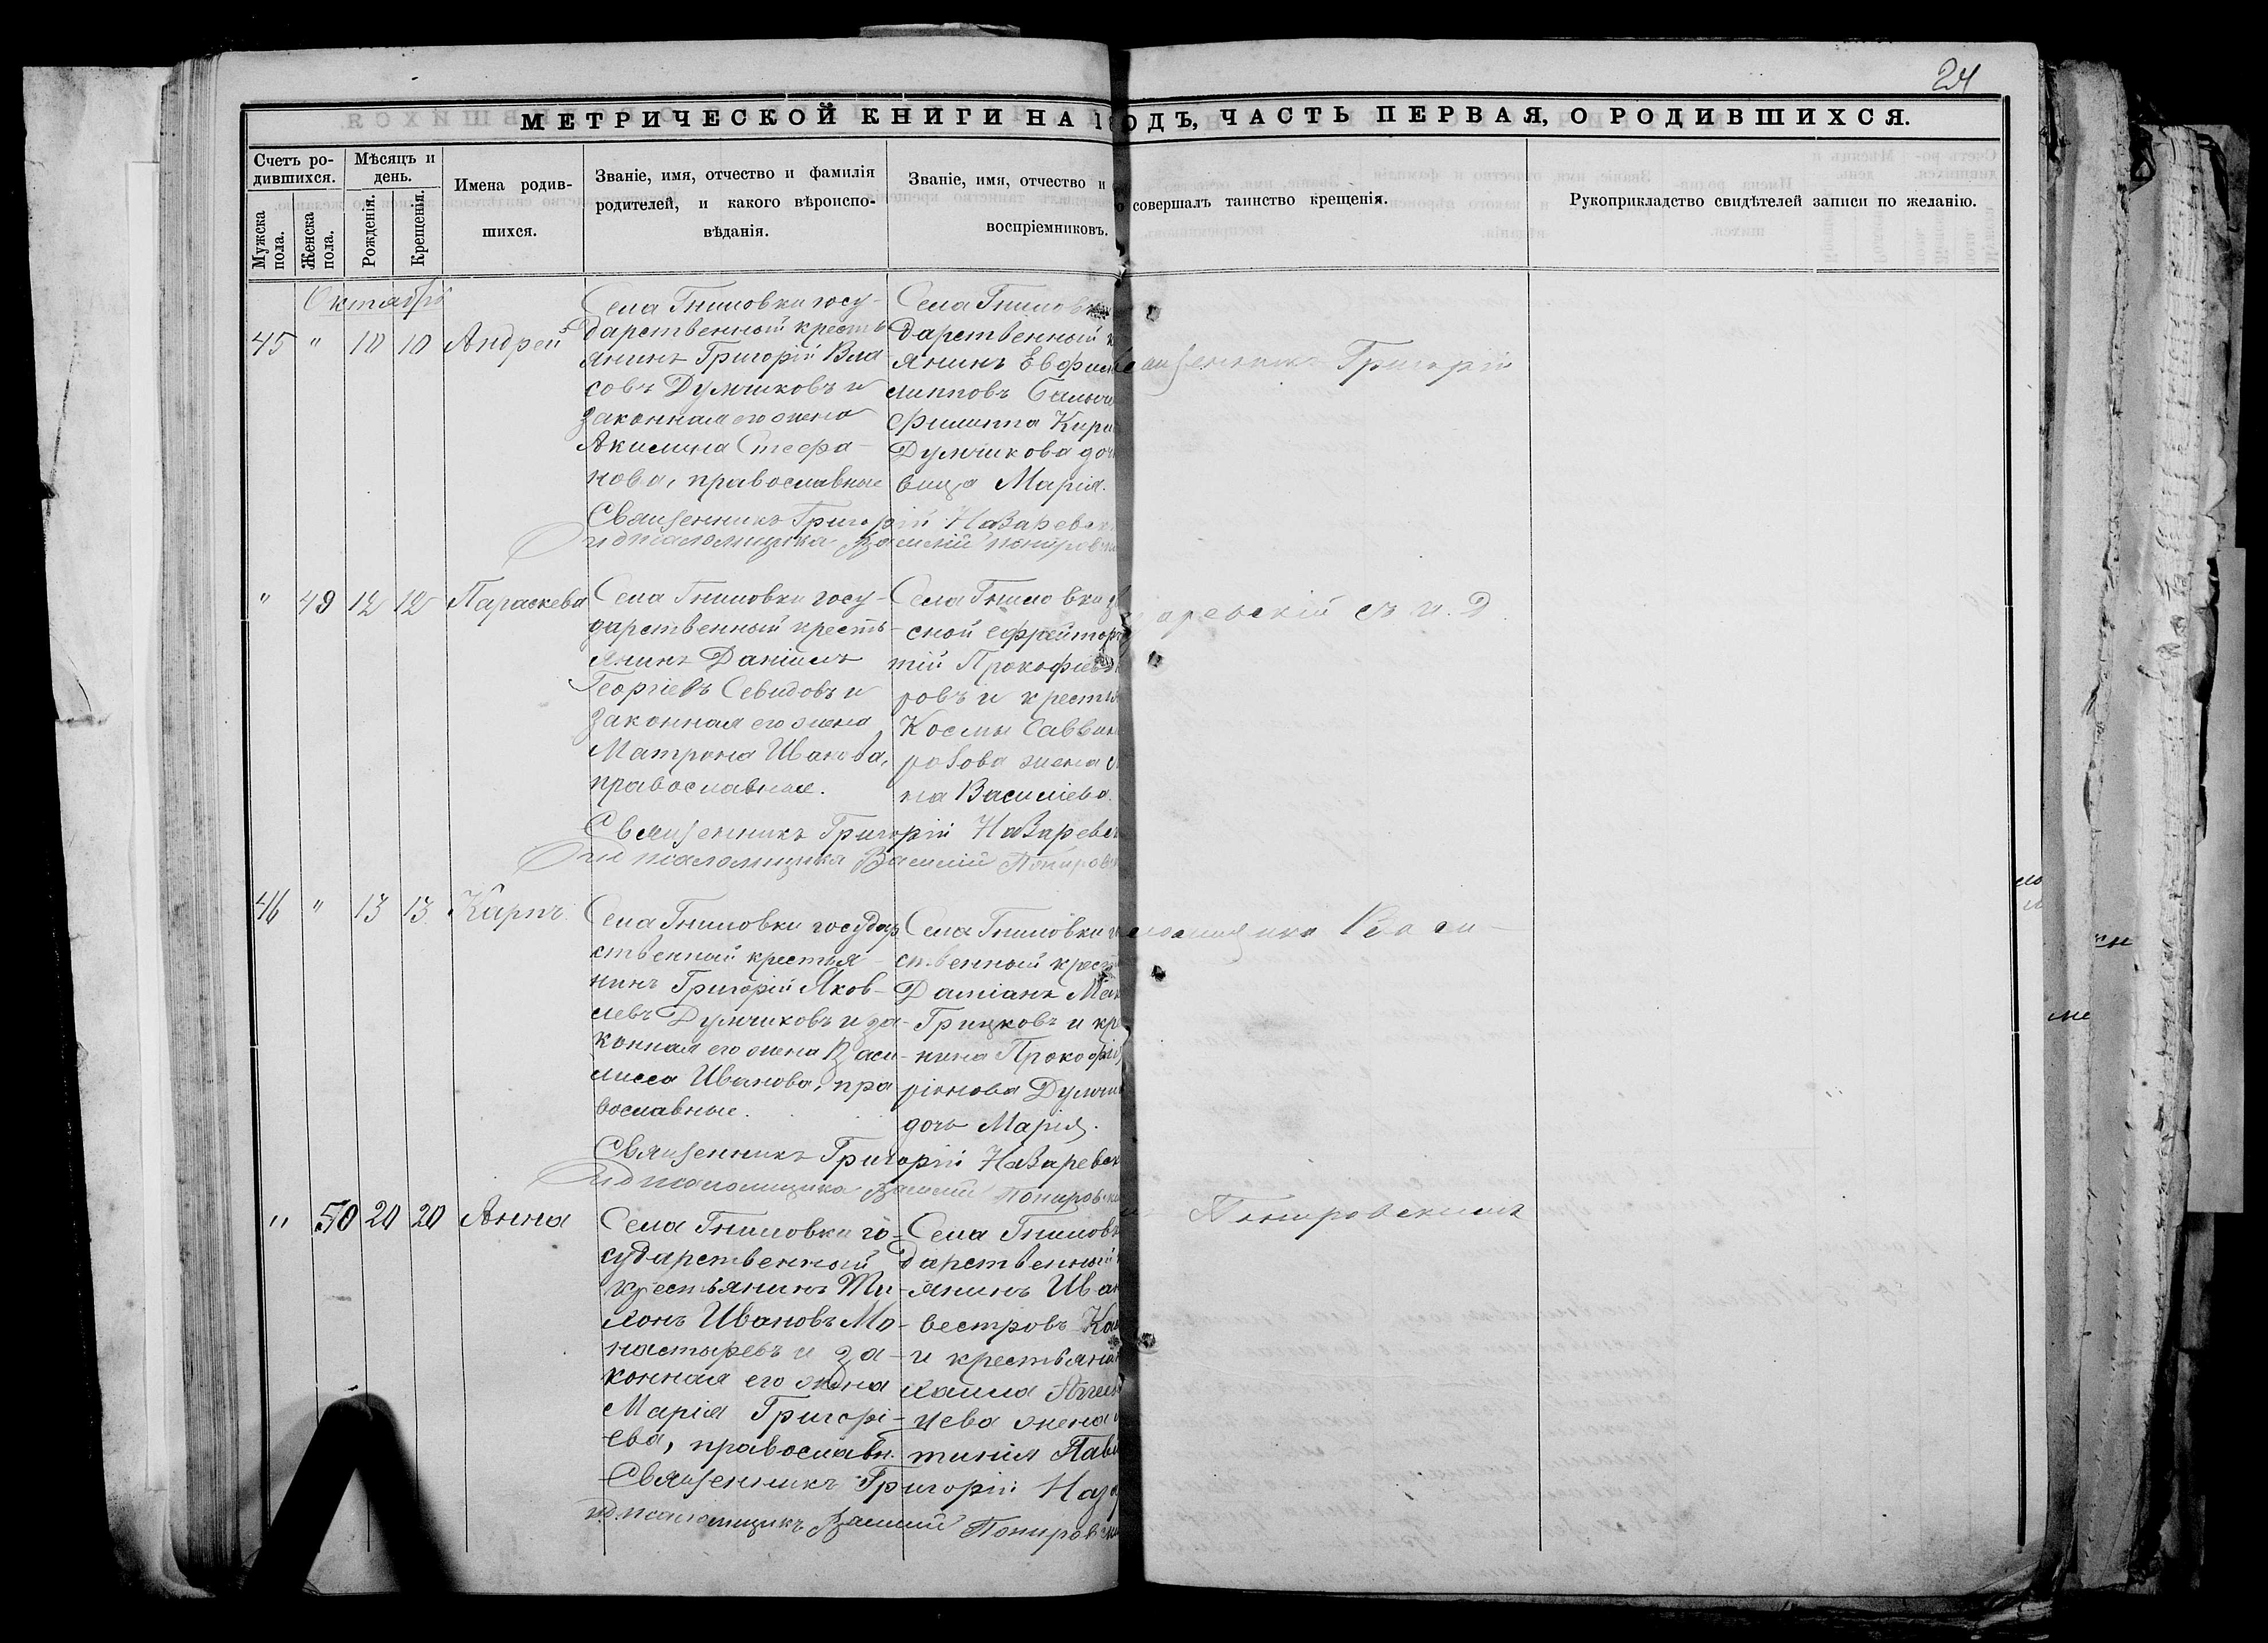 24
МЕТРИЧЕСКОЙ КНИГИ НА 1 ОДЪ, ЧАСТЬ ПЕРВАЯ, О РОДИВШИХСЯ.
Счетъ ро-
дившихся.
Мужска
пола.
Женска
пола.
Мѣсяцъ и
день.
Рожденія.
Крещенія.
Имена родив-
шихся.
Званіе, имя, отчество и фамилія
родителей, и какого вѣроиспо-
вѣданія.
Званіе, имя, отчество и
воспріемниковъ.
совершалъ таинство крещенія.
Рукоприкладство свидѣтелей записи по желанію.
Октября
45 " 10 10 Андрей
Села Гниловки госу-
дарственный кресть-
янинъ Григорій Вла-
совъ Думчиковъ и
законная его жена
Акилина Стефа-
нова, православные
Села Гниловки
дарственный к
янинъ Евфим
липповъ
Филиппа Кири
Думчикова доч
вица Марія.
Священникъ Григорій Назаревск
и д псаломщика Василій Понировск
Григорій
" 49 12 12 Параскева
Села Гниловки госу-
дарственный кресть-
янинъ Даніилъ
Георгіевъ Севидовъ и
законная его жена
Матрона Иванова,
православные.
Села Гниловки
сной ефрейторъ
тій Прокофіевъ
ровъ и кресть
Космы Саввин
рова жена
на Василіева.
Священникъ Григорій Назаревск
и д псаломщика Василій Понировск
аревскій съ и. д.
46 " 13 13 Карпъ.
Села Гниловки государ
ственный крестья-
нинъ Григорій Яков-
левъ Думчиковъ и за-
конная его жена Васи-
лисса Иванова, пра
вославные.
Села Гниловки г
ственный крест
Даміанъ Мак
Грицковъ и кр
нина Прокофія
ріонова Думчик
дочь Марія.
Священникъ Григорій Назаревск
и д псаломщика Василій Понировск
псаломщика Васи-
" 50 20 20 Анна
Села Гниловки го-
сударственный
крестьянинъ Ти-
хонъ Ивановъ Мо-
настыревъ и за-
конная его жена
Марія Григорі-
ева, православн.
Села Гниловк
дарственный
янинъ Иван
вестровъ
и крестьянин
хаила
цева жена
тинія Павл
Священникъ Григорій Назар
и.д. псаломщикъ Василій Понировск
Понировскимъ